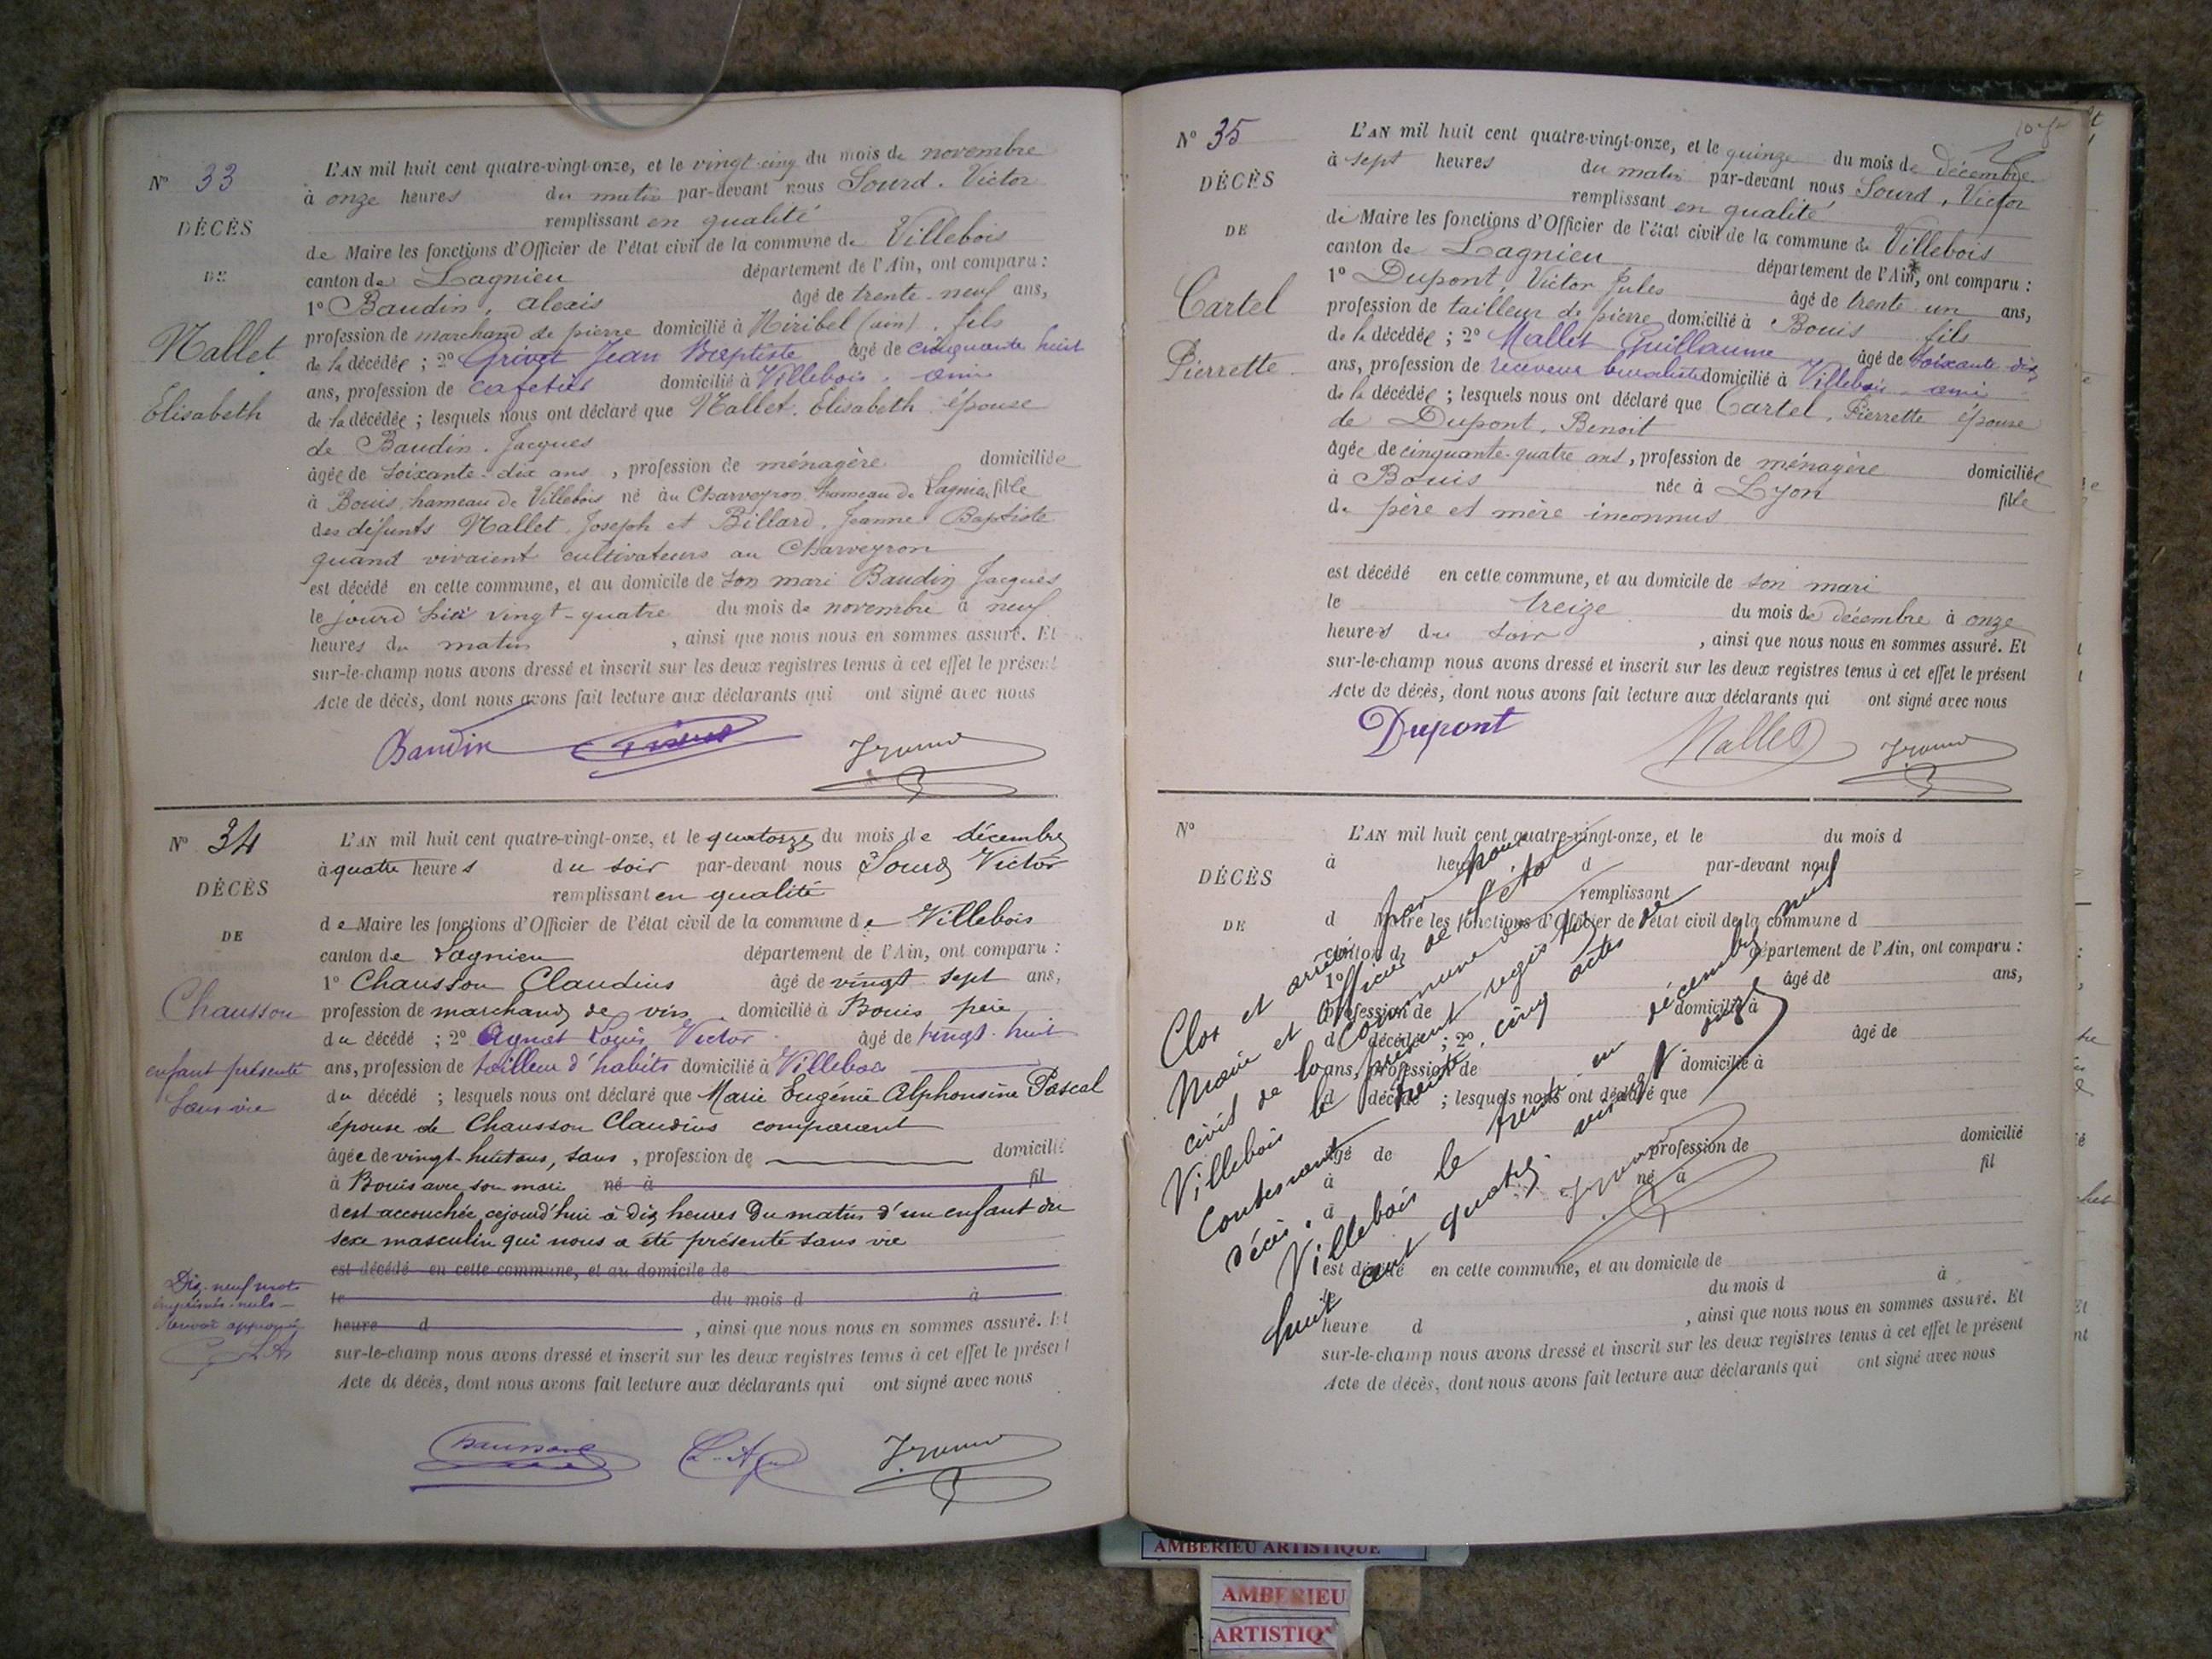 N° 33
DÉCÈS
DE
Mallet
Elisabeth
L'AN mil huit cent quatre-vingt-onze, et le vingt-cinq du mois de novembre
à onze heures du matin par-devant nous Sourd. Victor
remplissant en qualité
de Maire les fonctions d'Officier de l'état civil de la commune de Villebois
canton de Lagnieu département de l'Ain, ont comparu :
1° Baudin, alexis âgé de trente-neuf ans,
profession de marchand de pierre domicilié à Miribel (ain). fils
de la décédée ; 2° Grivet Jean Baptiste âgé de cinquante huit
ans, profession de cafetier domicilié à Villebois. ami
de la décédée ; lesquels nous ont déclaré que Mallet. Elisabeth épouse
de Baudin. Jacques
âgée de soixante-dix ans, profession de ménagère domiciliée
à Bouis, hameau de Villebois né au Charveyron hameau de Lagnieu fille
des défunts Mallet Joseph et Billard. Jeanne Baptiste
quand vivaient cultivateurs au Charveyron
est décédé en cette commune, et au domicile de son mari Baudin Jacques
le jourd'hier vingt-quatre du mois de novembre à neuf
heures du matin , ainsi que nous nous en sommes assuré. Et
sur-le-champ nous avons dressé et inscrit sur les deux registres tenus à cet effet le présent
Acte de décès, dont nous avons fait lecture aux déclarants qui ont signé avec nous
Baudin
N° 34
DÉCÈS
DE
Chausson
enfant présenté
sans vie
L'AN mil huit cent quatre-vingt-onze, et le quatorze du mois de décembre
à quatre heures du soir par-devant nous Sourd Victor
remplissant en qualité
de Maire les fonctions d'Officier de l'état civil de la commune de Villebois
canton de Lagnieu département de l'Ain, ont comparu :
1° Chausson Claudius âgé de vingt sept ans,
profession de marchand de vin domicilié à Bouis père
du décédé ; 2° Agnet Louis Victor âgé de vingt-huit
ans, profession de tailleur d'habits domicilié à Villebois
du décédé ; lesquels nous ont déclaré que Marie Eugénie Alphonsine Pascal
épouse de Chausson Claudius comparant
âgée de vingt-huit ans, sans , profession de domicilié
à Bouis avec son mari né à fil
d est accouchée cejourd'hui à dix heures du matin d'un enfant du
sexe masculin qui nous a été présenté sans vie
est décédé en cette commune, et au domicile de
le du mois d à
heure d , ainsi que nous nous en sommes assuré. Et
sur-le-champ nous avons dressé et inscrit sur les deux registres tenus à cet effet le présent
Acte de décès, dont nous avons fait lecture aux déclarants qui ont signé avec nous
Dix-neuf mots
imprimés nuls
Renvoi approuvé
N° 35
DÉCÈS
DE
Cartel
Pierrette
L'AN mil huit cent quatre-vingt-onze, et le quinze du mois de décembre
à sept heures du matin par-devant nous Sourd, Victor
remplissant en qualité
de Maire les fonctions d'Officier de l'état civil de la commune de Villebois
canton de Lagnieu département de l'Ain, ont comparu :
1° Dupont, Victor Jules âgé de trente un ans,
profession de tailleur de pierre domicilié à Bouis fils
de la décédée ; 2° Mallet Guillaume âgé de soixante-dix
ans, profession de receveur buraliste domicilié à Villebois ami
de la décédée ; lesquels nous ont déclaré que Cartel. Pierrette épouse
de Dupont. Benoit
âgée de cinquante-quatre ans, profession de ménagère domiciliée
à Bouis née à Lyon fille
de père et mère inconnus
est décédé en cette commune, et au domicile de son mari
le treize du mois de décembre à onze
heures du soir , ainsi que nous nous en sommes assuré. Et
sur-le-champ nous avons dressé et inscrit sur les deux registres tenus à cet effet le présent
Acte de décès, dont nous avons fait lecture aux déclarants qui ont signé avec nous
Dupont Mallet
N°
DÉCÈS
DE
L'AN mil huit cent quatre-vingt-onze, et le du mois d
à heure d par-devant nous
remplissant
d Maire les fonctions d'Officier de l'état civil de la commune d
canton d département de l'Ain, ont comparu :
1° âgé de ans,
profession de domicilié à
d décédé ; 2° âgé de
ans, profession de domicilié à
d décédé ; lesquels nous ont déclaré que
âgé de profession de domicilié
à né à fil
d
est décédé en cette commune, et au domicile de
le du mois d à
heure d , ainsi que nous nous en sommes assuré. Et
sur-le-champ nous avons dressé et inscrit sur les deux registres tenus à cet effet le présent
Acte de décès, dont nous avons fait lecture aux déclarants qui ont signé avec nous
Clos et arrêté par nous
Maire et Officier de l'état
civil de la commune de
Villebois le présent registre de
contenant trente cinq actes
décès.
Villebois le trente un décembre mil
huit cent quatre vingt onze
AMBERIEU ARTISTIQUE
AMBERIEU
ARTISTIQ